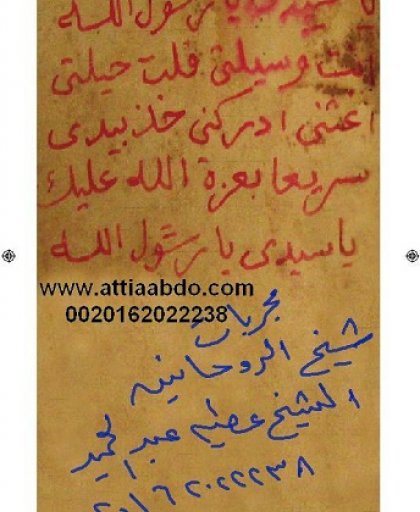 يا سيدى يا رسول الله
انت وسيلتى قلت حيلتى
اغثنى ادركنى خذ بيدى
سريعا بعزة الله عليك
يا سيدى يا رسول الله
www.attiaabdo.com
0020162022238
مجربات
شيخ الروحانيين
الشيخ عطيه عبد الحميد
٢٠١٦٢٠٢٢٢٣٨